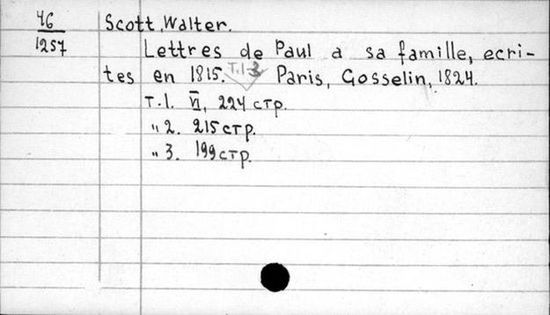 46
1257
Scott, Walter.
Lettres de Paul a sa famille, ecri-
tes en 1815. Т.1-3 Paris, Gosselin, 1824.
Т.1. VI, 224 стр.
„ 2. 215 стр.
„ 3. 199 стр.